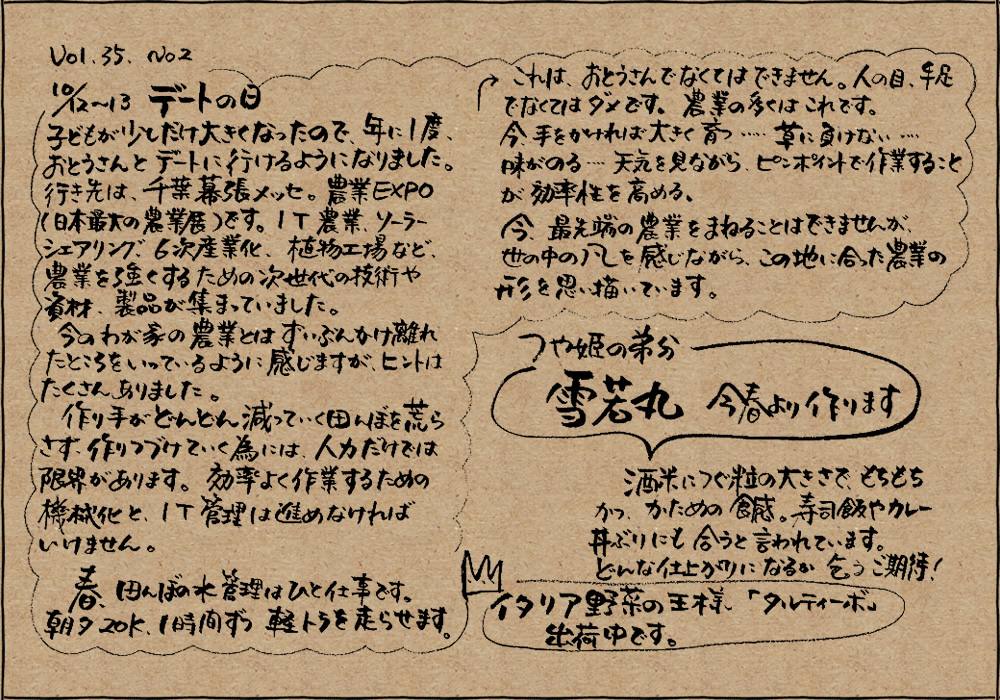 Vol.35. No2
10/12~13 デートの日
子どもが少しだけ大きくなったので、年に1度、
おとうさんとデートに行けるようになりました。
行き先は、千葉幕張メッセ。農業EXPO
(日本最大の農業展)です。IT農業、ソーラー
シェアリング、6次産業化、植物工場など、
農業を強くするための次世代の技術や
資材、製品が集まっていました。
今のわが家の農業とはずいぶんかけ離れ
たところをいっているように感じますが、ヒントは
たくさんありました。
作り手がどんどん減っていく田んぼを荒ら
さず、作りつづけていく為には、人力だけでは
限界があります。効率よく作業するための
機械化と、IT管理は進めなければ
いけません。
春、田んぼの水管理はひと仕事です。
朝夕20K、1時間ずつ軽トラを走らせます。
これは、おとうさんでなくてはできません。人の目、手足
でなくてはダメです。農業の多くはこれです。
今、手をかければ大きく育つ……草に負けない…
味がのる…天気を見ながら、ピンポイントで作業すること
が効率性を高める。
今、最先端の農業をまねることはできませんが、
世の中の風を感じながら、この地に合った農業の
形を思い描いています。
つや姫の弟分
雪若丸 今春より作ります
酒米につぐ粒の大きさで、もちもち
かつ、かための食感。寿司飯やカレー
丼ぶりにも合うと言われています。
どんな仕上がりになるか 乞うご期待!
イタリア野菜の王様、「タルティーボ」
出荷中です。